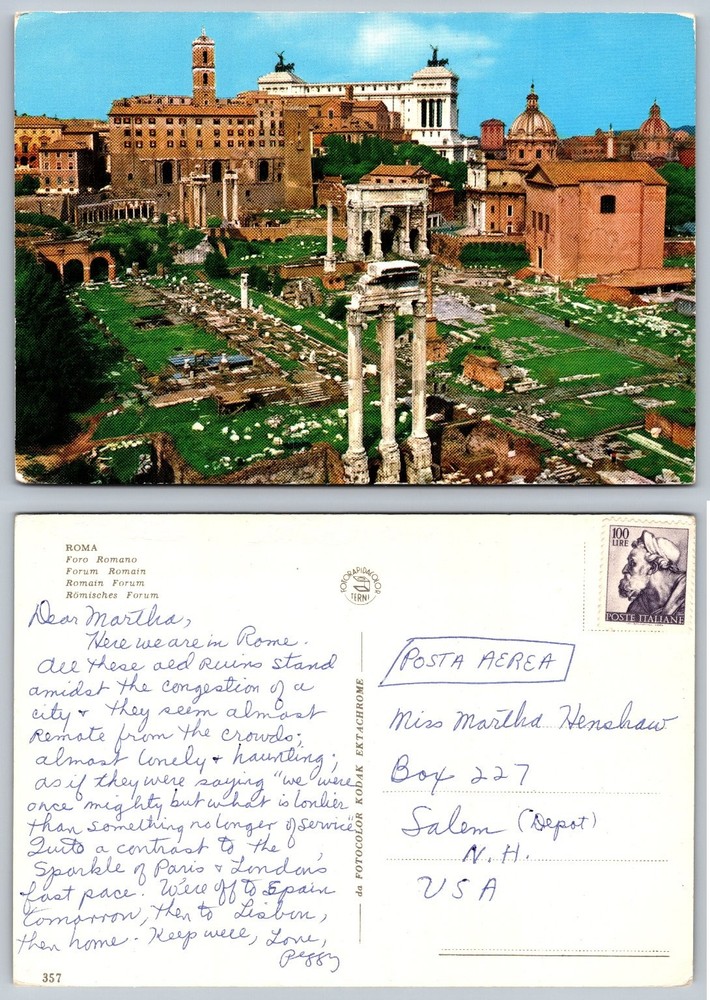 ROMA
Foro Romano
Forum Romain
Romain Forum
Römisches Forum
FOTORAPIDACOLOR
TERNI
100
LIRE
POSTE ITALIANE
Dear Martha,
Here we are in Rome.
All these old Ruins stand
amidst the congestion of a
city & they seem almost
Remote from the crowds;
almost lonely & haunting;
as if they were saying "we were
once mighty but what is lonlier
than something no longer of service"
Quite a contrast to the
Sparkle of Paris & London's
fast pace. We're off to Spain
tomorrow, then to Lisbon,
then home. Keep well, Love,
Peggy
da FOTOCOLOR KODAK EKTACHROME
POSTA AEREA
Miss Martha Henshaw
Box 227
Salem (Depot)
N.H.
USA
357